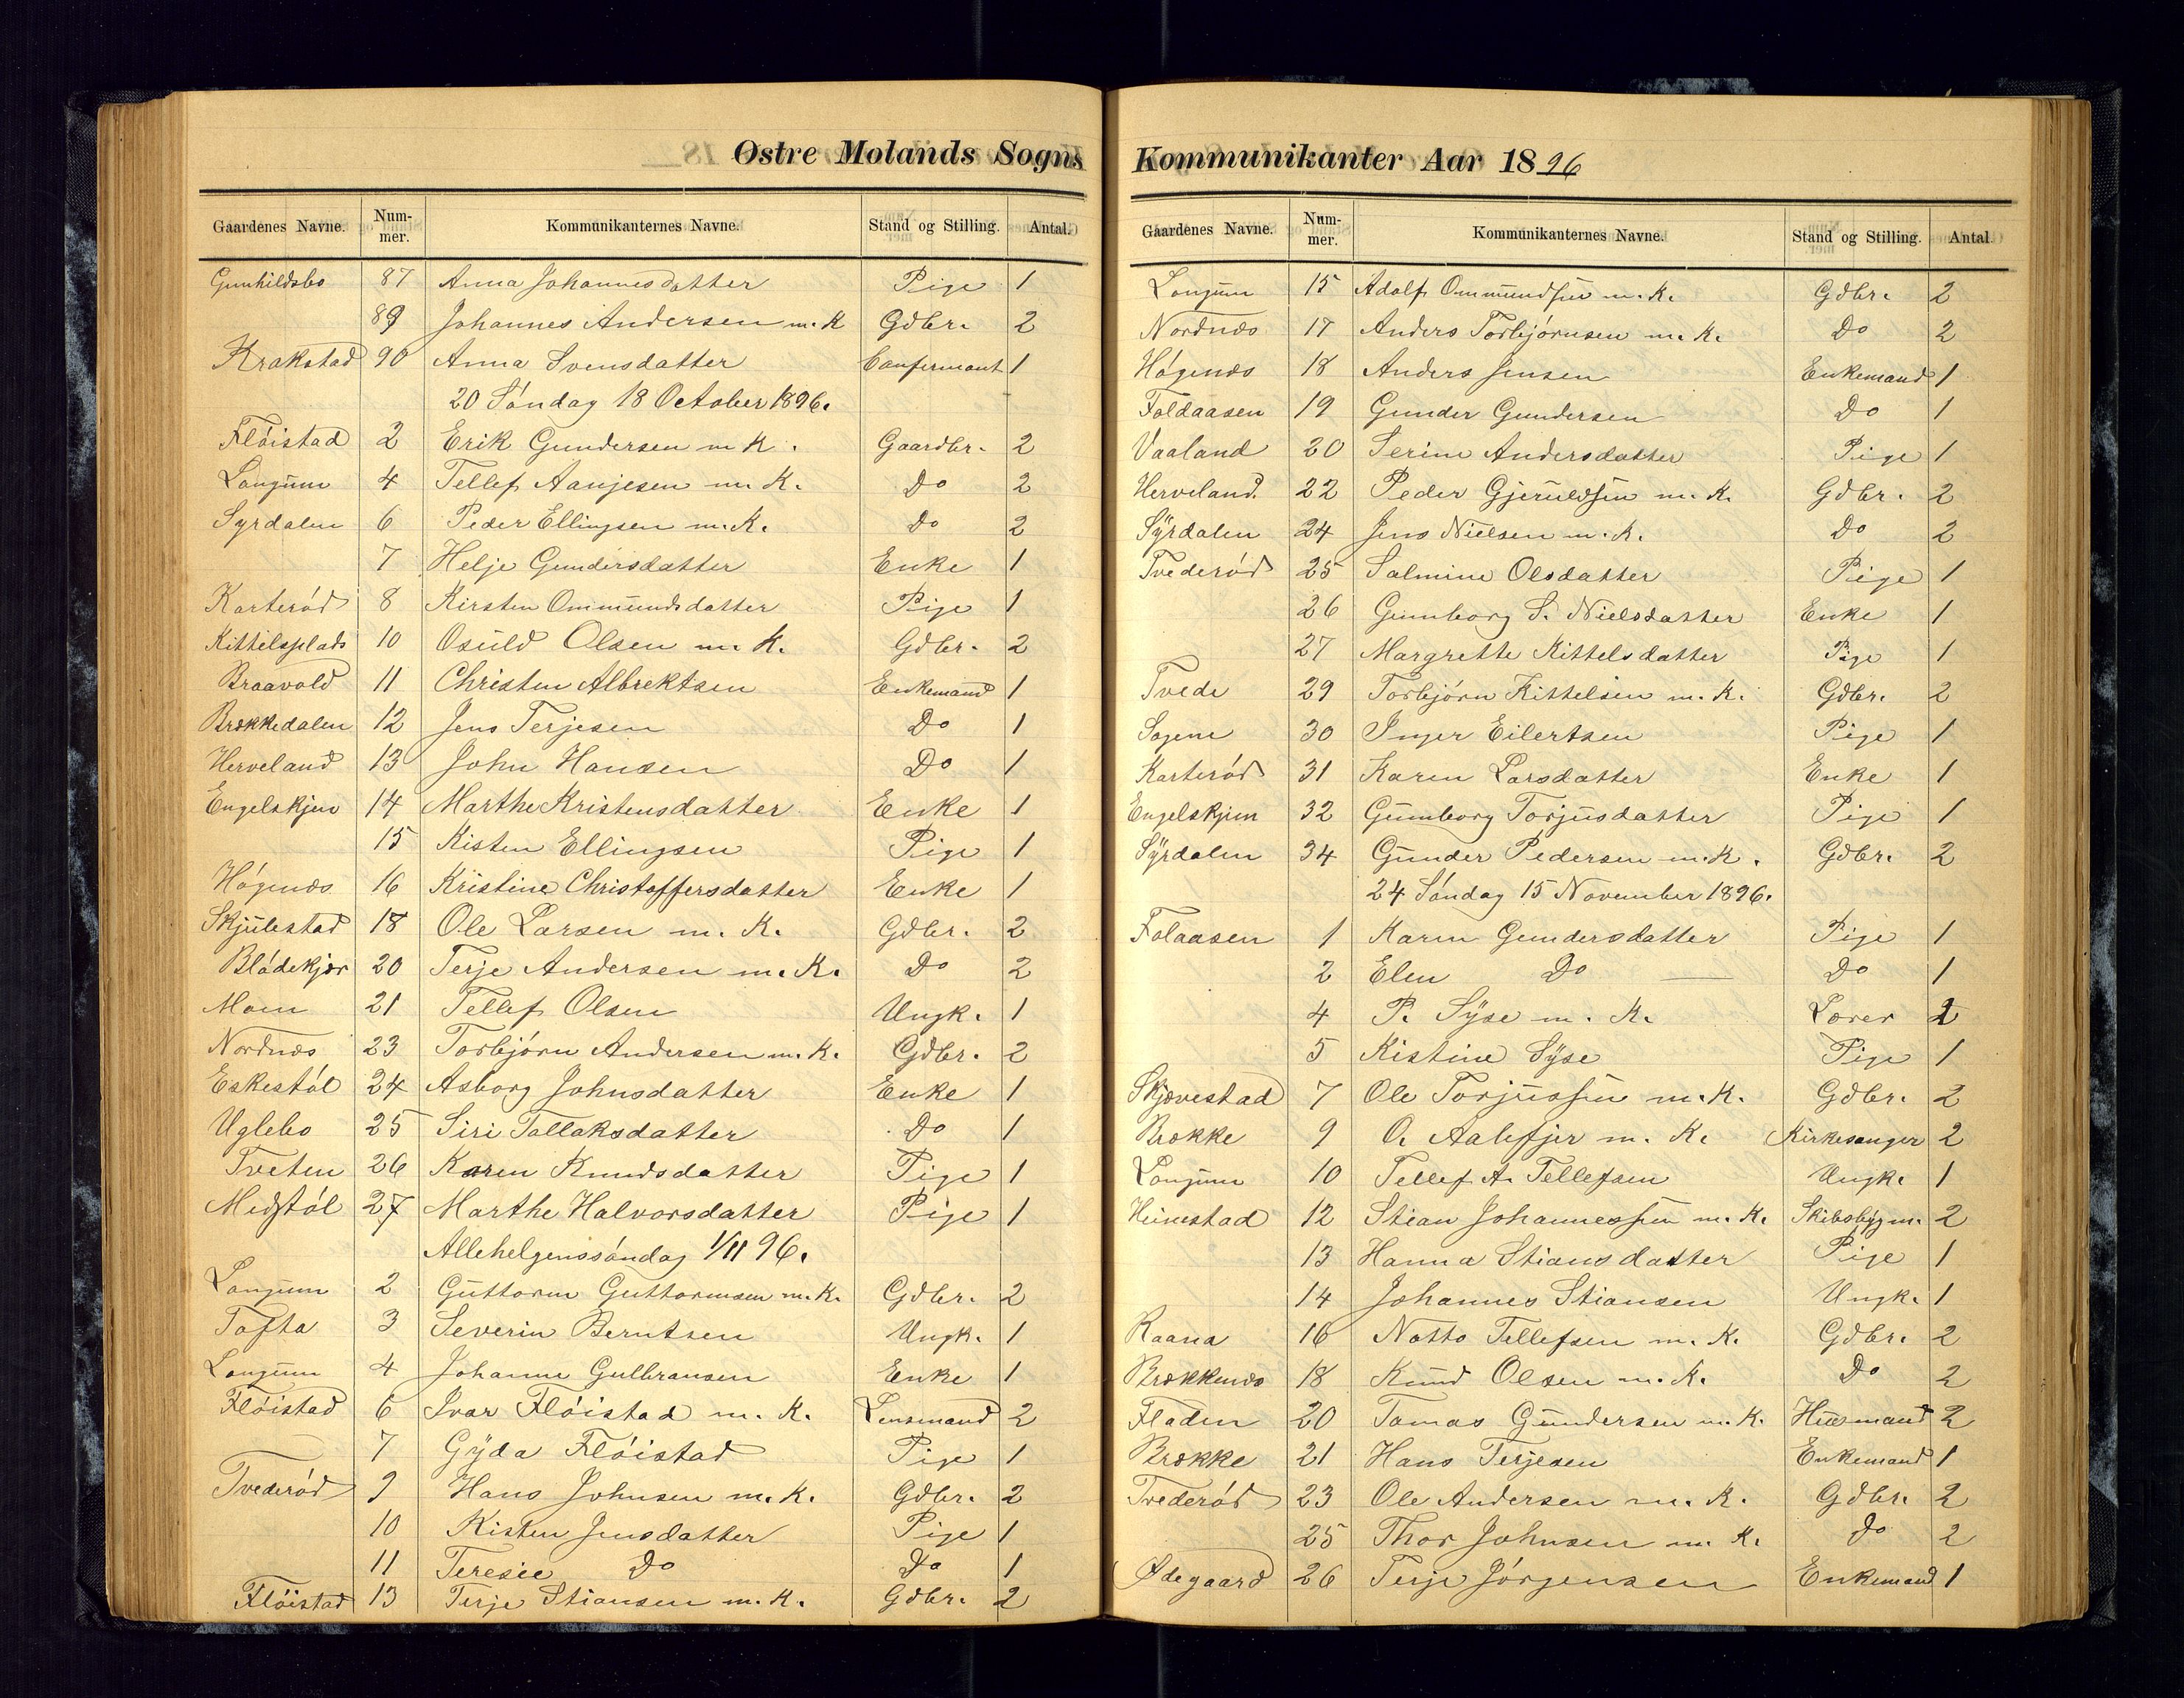 Østre Molands Sogns
Gaardenes Navne. Nummer. Kommunikanternes Navne. Stand og Stilling. Antal.
Gunhildsbo 87 Anna Johannesdatter Pige 1
89 Johannes Andersen m. K Gdbr. 2
Krakstad 90 Anna Svensdatter Confermant 1
20 Søndag 18 October 1896.
Fløistad 2 Erik Gundersen m K. Gaardbr. 2
Longum 4 Tellef Aanjesen m. K. Do 2
Syrdalen 6 Peder Ellingsen m. K. Do 2
7 Helje Gundersdatter Enke 1
Karterød 8 Kirsten Ommundsdatter Pige 1
Kittelsplads 10 Osuld Olsen m. K. Gdbr. 2
Braavold 11 Christen Albrektsen Enkemand 1
Brækkedalen 12 Jens Terjesen Do 1
Herveland 13 John Hansen Do 1
Engelskjen 14 Marthe Kristensdatter Enke 1
15 Kisten Ellingsen Pige 1
Høgenæs 16 Kristine Christoffersdatter Enke 1
Skjulestad 18 Ole Larsen m. K. Gdbr. 2
Blødekjær 20 Terje Andersen m. K. Do 2
Moen 21 Tellef Olsen Ungk. 1
Nordnæs 23 Torbjørn Andersen m. K. Gdbr. 2
Eskestøl 24 Asborg Johnsdatter Enke 1
Uglebo 25 Siri Tallaksdatter Do 1
Tveten 26 Karen Knudsdatter Pige 1
Midtstøl 27 Marthe Halvorsdatter Pige 1
Allehelgenssøndag 1/11 96.
Longum 2 Guttorm Guttormsen m. K. Gdbr. 2
Tofta 3 Severin Berntsen Ungk. 1
Longum 4 Johanne Gulbransen Enke 1
Fløistad 6 Ivar Fløistad m. K. Lensmand 2
7 Gyda Fløistad Pige 1
Tvederød 9 Hans Johnsen m. K. Gdbr. 2
10 Kisten Jensdatter Pige 1
11 Teresie Do Do 1
Fløistad 13 Terje Stiansen m. K. Gdbr. 2
Kommunikanter Aar 1896
Gaardenes Navne. Nummer. Kommunikanternes Navne. Stand og Stilling. Antal
Longum 15 Adolf Ommundsen m. K. Gdbr. 2
Nordnæs 17 Anders Torbjørnsen m. K. Do 2
Høgenæs 18 Anders Jensen Enkemand 1
Foldaasen 19 Gunder Gundersen Do 1
Vaaland 20 Serine Andersdatter Pige 1
Herveland 22 Peder Gjeruldsen m. K. Gdbr. 2
Syrdalen 24 Jens Nielsen m. K. Do 2
Tvederød 25 Salmine Olsdatter Pige 1
26 Gunborg S. Nielsdatter Enke 1
27 Margrette Kittelsdatter Pige 1
Tvede 29 Torbjørn Kittelsen m. K. Gdbr. 2
Sogene 30 Inger Eilertsen Pige 1
Karterød 31 Karen Larsdatter Enke 1
Engelskjen 32 Gunborg Torjusdatter Pige 1
Syrdalen 34 Gunder Pedersen m. K. Gdbr. 2
24 Søndag 15 November 1896.
Folaasen 1 Karen Gundersdatter Pige 1
2 Elen Do Do 1
4 P. Syse m. K. Lærer 2
5 Kistine Syse Pige 1
Skjævestad 7 Ole Torjussen m. K. Gdbr. 2
Brække 9 O. Aalefjer m. K. Kirkesanger 2
Longum 10 Tellef A. Tellefsen Ungk. 1
Heimestad 12 Stian Johannessen m. K. Skibsbygm. 2
13 Hanna Stiansdatter Pige 1
14 Johannes Stiansen Ungk. 1
Raana 16 Notto Tellefsen m. K. Gdbr. 2
Brækkenæs 18 Knud Olsen m. K. Do 2
Fladen 20 Tomas Gundersen m. K. Husmand 2
Brække 21 Hans Terjesen Enkemand 1
Tvederød 23 Ole Andersen m. K. Gdbr. 2
25 Thor Johnsen m. K. Do 2
Ødegaard 26 Terje Jørgensen Enkemand 1